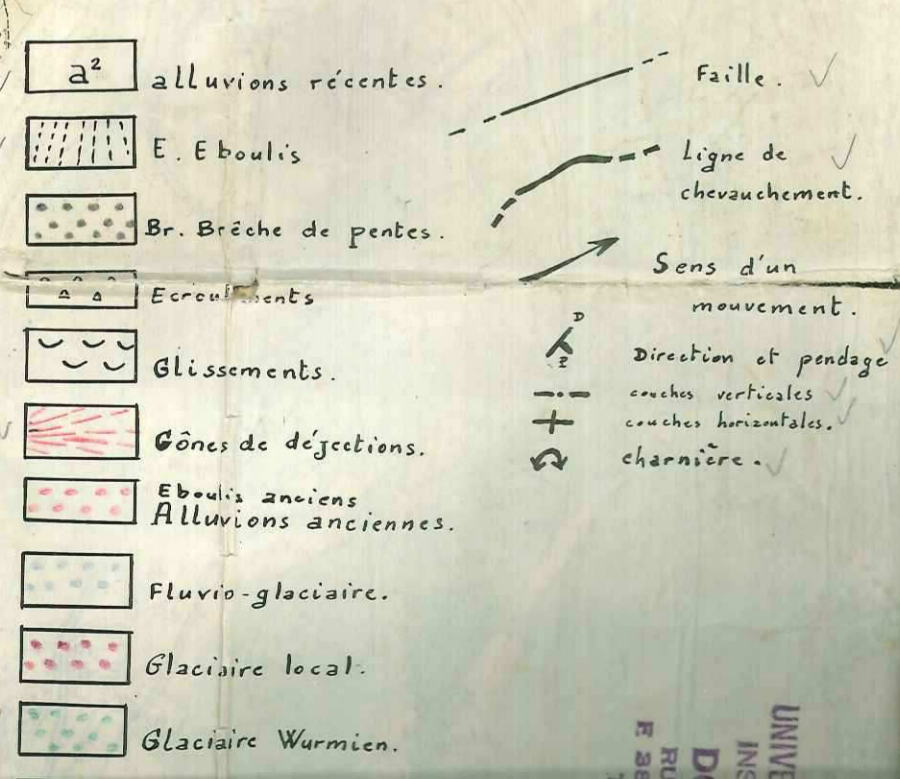 a²
alluvions récentes.
E. Eboulis
Br. Brêche de pentes.
Glissements.
Cônes de déjections.
Eboulis anciens
Alluvions anciennes.
Fluvio-glaciaire.
Glaciaire local.
Glaciaire Wurmien.
Faille.
Ligne de
chevauchement.
Sens d'un
mouvement.
D
P
Direction et pendage
couches verticales
couches horizontales.
charnière.